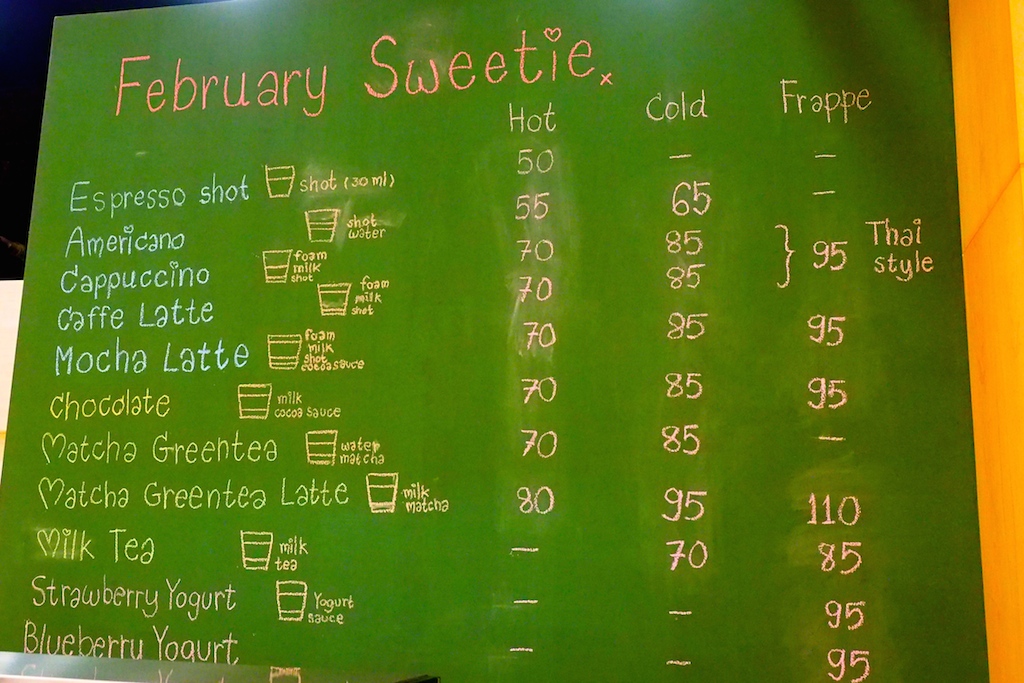 February Sweetie.x
Hot Cold Frappe
Espresso shot shot (30 ml) 50 — —
Americano shot water 55 65 —
Cappuccino foam milk shot 70 85 } 95 Thai style
Caffe Latte foam milk shot 70 85
Mocha Latte foam milk shot cocoa sauce 70 85 95
Chocolate milk cocoa sauce 70 85 95
Matcha Greentea water matcha 70 85 —
Matcha Greentea Latte milk matcha 80 95 110
Milk Tea milk tea — 70 85
Strawberry Yogurt Yogurt sauce — — 95
Blueberry Yogurt — — 95